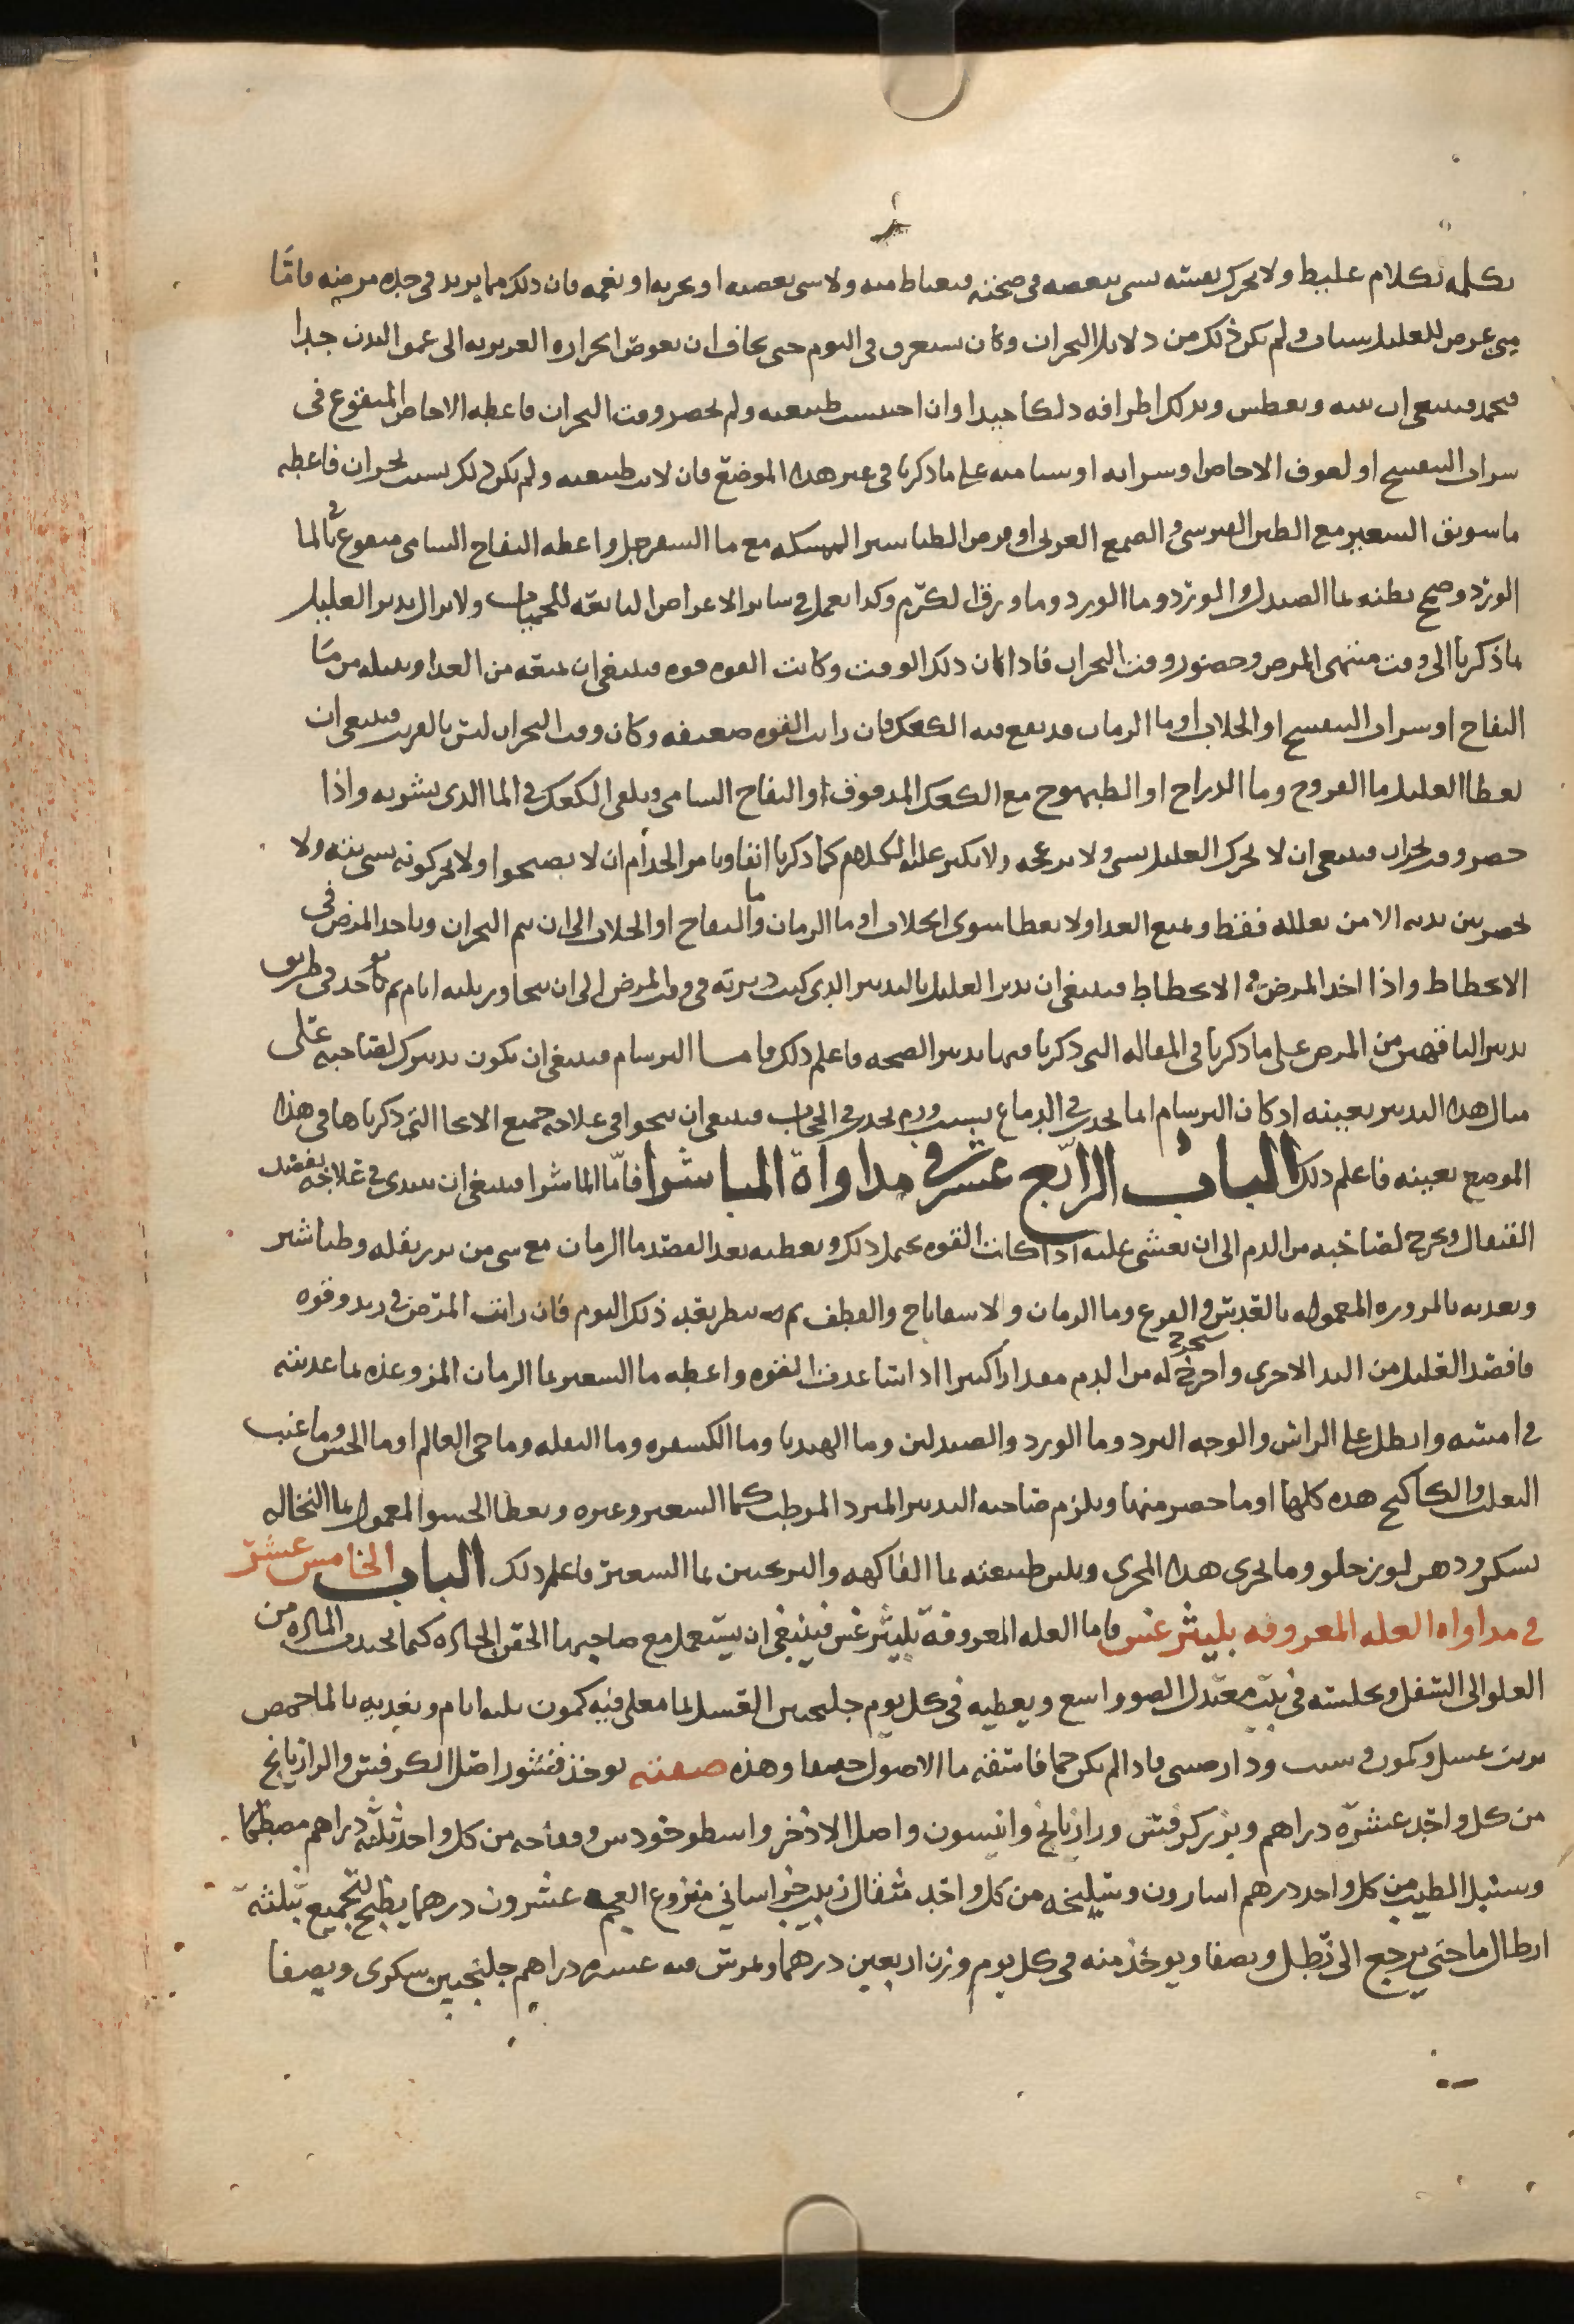 يكلمه بكلام غليظ ولا يحرك نفسه بشي ينغصه في صحته فيغتاظ منه ولا شي يغضبه او يحزنه او يغمه فان ذلك مما يزيد في حدة مرضه فامّا
متى عرض للعليل سبات ولم يكن ذلك من دلايل البحران وكان يستغرق في النوم حتى يخاف ان تغوص الحرارة الغريزيه الى عمق البدن جدا
فتخمد فينبغي ان ينبه ويعطس ويدلك اطرافه دلكا جيدا وان احتبست طبيعته ولم يحضر وقت البحران فاعطه الاجاص المنقوع في
شراب البنفسج او لعوق الاجاص او شرابه او شيا منه على ما ذكرنا في غير هذا الموضع فان لانت طبيعته ولم يكن ذلك بسبب بحران فاعطه
ما سويق الشعير مع الطين القبرسي والصمغ العربي او قرص الطباشير الممسكه مع ما السفرجل واعطه التفاح الشامي منقوع في الما
الورد وضمخ بطنه بما الصندل والورد وما الورد وما ورق الكرم وكذا يعمل في ساير الاعراض التابعه للحميات ولا يزال تدبير العليل
ما ذكرنا الى وقت منتهى المرض وحضور وقت البحران فاذا كان ذلك الوقت وكانت القوه قويه فينبغي ان تمنعه من الغذا وتنيله من ما
التفاح او شراب البنفسج او الجلاب او ما الرمان قد نقع فيه الكعك فان رايت القوه ضعيفه وكان وقت البحران ليس بالقريب فينبغي ان
يعطا العليل ما الفروج وما الدراج او الطيهوج مع الكعك المدقوق او التفاح الشامي ويلقى الكعك في الما الذي يشربه واذا
حضر وقت البحران فينبغي ان لا يحرك العليل بشي ولا يزعجه ولا يكثر عليه الكلام كما ذكرنا انفا ويامر الخدام ان لا يصيحوا ولا يحركونه بشي بته ولا
يحضر بين يديه الا من يعلله فقط ويمنع الغذا ولا يعطا سوى الجلاب او ما الرمان وما التفاح او الجلاب الى ان يتم البحران وياخذ المرض في
الانحطاط واذا اخذ المرض في الانحطاط فينبغي ان تدبر العليل بالتدبير الذي كنت دبرته في وقت المرض الى ان يتجاوز ثلثه ايام ثم تاخذ في طريق
تدبير الناقهين من المرض على ما ذكرنا في المقاله التي ذكرنا فيها تدبير الصحه فاعلم ذلك فامـا البرسام فينبغي ان يكون تدبيرك لصاحبه على
مثال هذا التدبير بعينه اذ كان البرسام انما يحدث في الدماغ بسبب ورم يحدث في الحجاب فينبغي ان تنحوا في علاجه جميع الانحا التي ذكرناها في هذا
الموضع بعينه فاعلم ذلك الباب الرابع عشر في مداواة الماشرا فامّا الماشرا فينبغي ان تبتدي في علاجه بفصد
القيفال وتخرج لصاحبه من الدم الى ان يغشى عليه اذا كانت القوه تحمل ذلك ويعطيه بعد الفصد ما الرمان مع شي من بزر بقله وطباشير
وتغذيه بالمزوره المعموله بالعدس والقرع وما الرمان والاسفاناخ والقطف ثم تنظر بعد ذلك اليوم فان رايت المرض في تزيد وقوه
فافصد القليل من اليد الاخرى واخرج له من الدم مقدارا كثيرا اذا ساعدت القوه واعطه ما الشعير بما الرمان المز وغذه بما غديته
في امسه واطل على الراس والوجه البرد وما الورد والصندلين وما الهندبا وما الكسفره وما البقله وما حي العالم او ما الخس وما عنب
الثعلب والكاكنج هذه كلها او ما حضر منها ويلزم صاحبه التدبير المبرد المرطب كما الشعير وغيره ويعطا الحسو المعمول بما النخاله
بسكر ودهن لوز حلو وما يجري هذا المجرى وتلين طبيعته بما الفاكهه والترنجبين بما الشعير فاعلم ذلك الباب الخامس عشر
في مداواه العله المعروفه بليثرغس فاما العله المعروفة بليثرغس فينبغي ان يستعمل مع صاحبها الحقن الحاده كيما تجذب الماده من
العلو الى السفل وتجلسه في بيت معتدل الضو واسع ويعطيه في كل يوم جلنجبين العسل بما مغلي فيه كمون ثلثه ايام وتغذيه بالما حمص
بزيت عسل وكمون وشبت ودارصيني فاذا لم يكن حما فاسقه ما الاصول وهذه صفته يوخذ قشور اصل الكرفس والرازيانج
من كل واحد عشره دراهم وبزر كرفس ورازيانج وانيسون واصل الاذخر واسطوخودس وفقاحه من كل واحد ثلثه دراهم مصطكا
وسنبل الطيب من كل واحد درهم اسارون وسليخه من كل واحد مثقال زبيب خراساني منزوع العجم عشرون درهما يطبخ الجميع بثلثة
ارطال ما حتى يرجع الى رطل ويصفا ويوخذ منه في كل يوم وزن اربعين درهما ويمرس فيه عشره دراهم جلنجبين سكري ويصفا